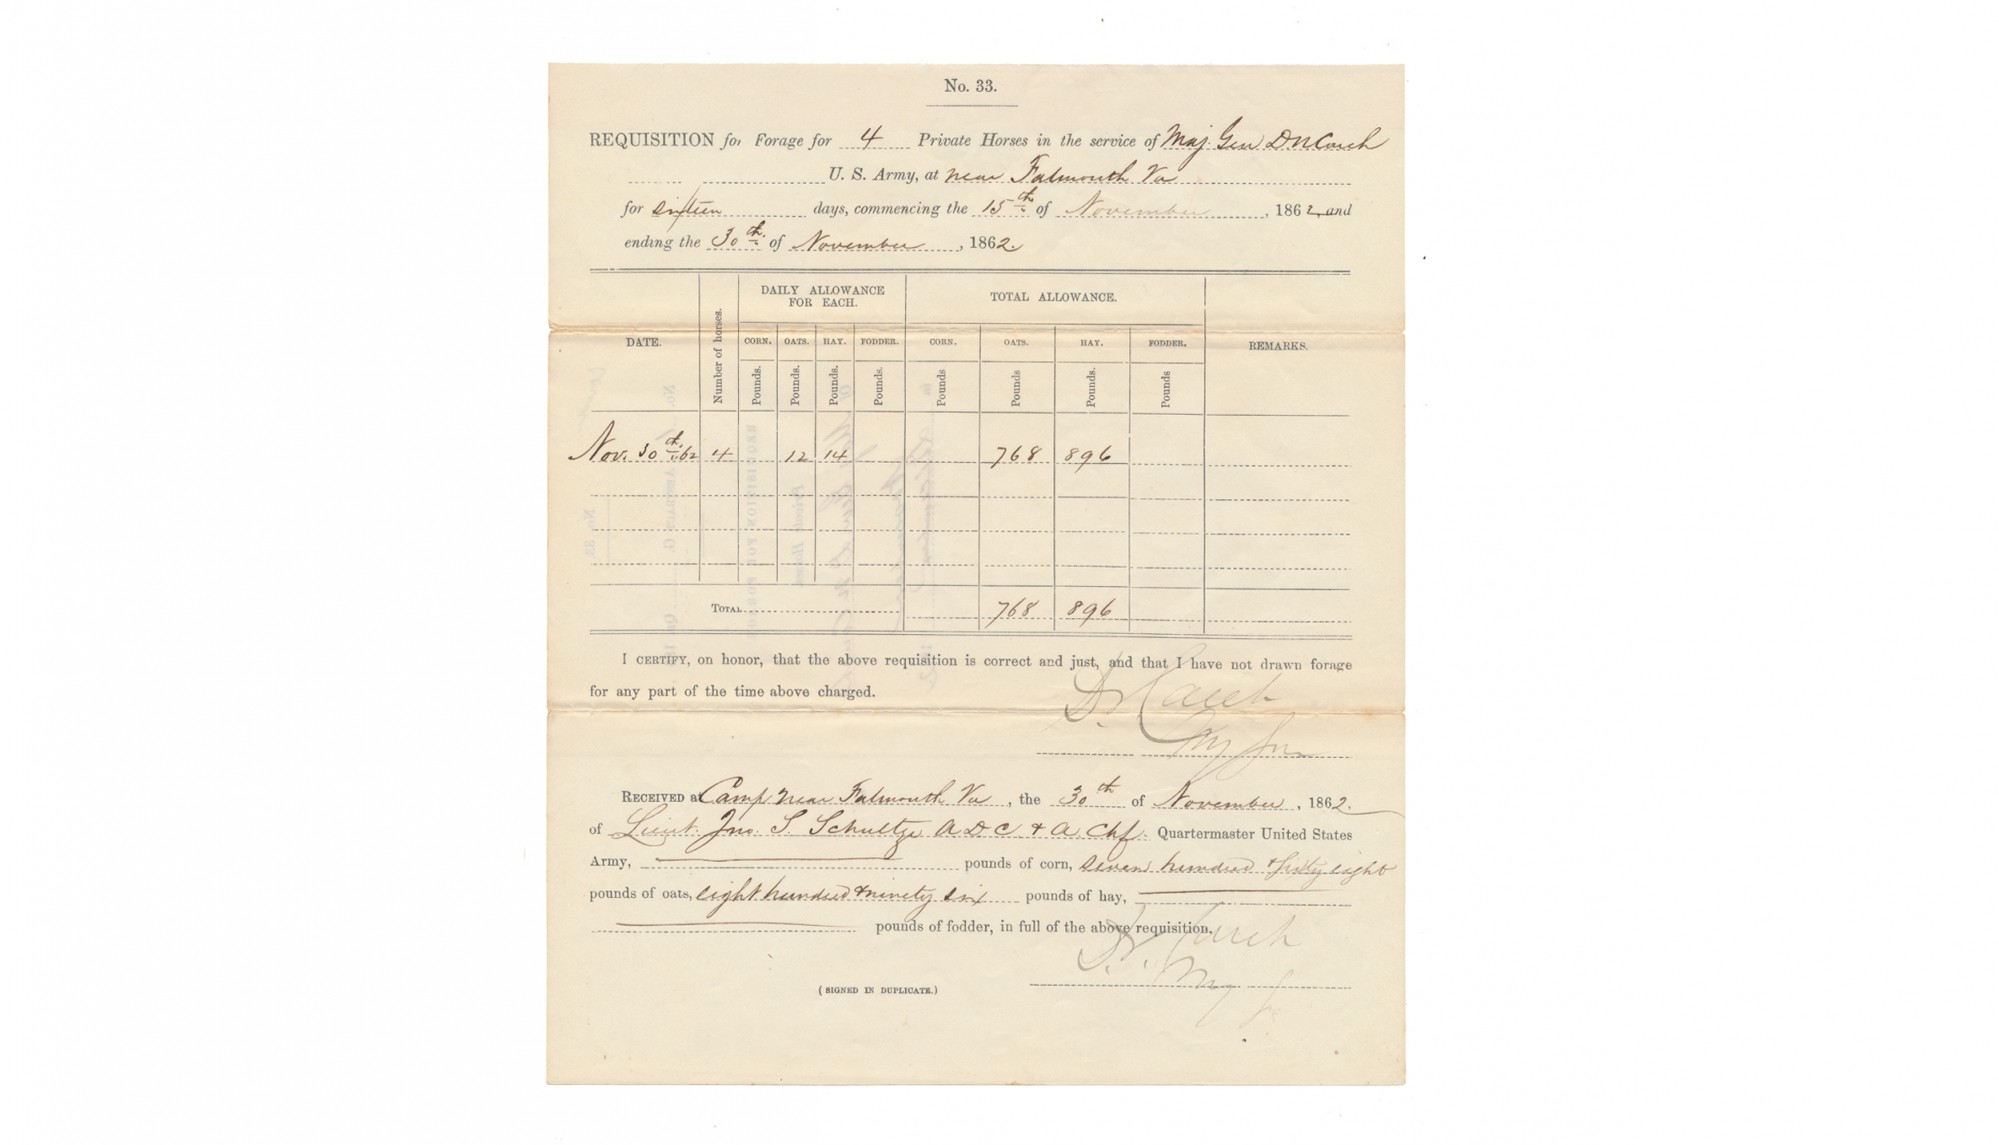 No. 33.
REQUISITION for Forage for 4 Private Horses in the service of Maj. Gen D N Couch
U. S. Army, at near Falmouth Va
for sixteen days, commencing the 15th of November, 1862, and
ending the 30th of November, 1862.
DATE. Number of horses. DAILY ALLOWANCE FOR EACH. TOTAL ALLOWANCE. REMARKS.
CORN. OATS. HAY. FODDER. CORN. OATS. HAY. FODDER.
Pounds. Pounds. Pounds. Pounds. Pounds Pounds Pounds. Pounds
Nov. 30th 62 4 12 14 768 896
TOTAL 768 896
I CERTIFY, on honor, that the above requisition is correct and just, and that I have not drawn forage
for any part of the time above charged.
D. N. Couch
Maj Gen
RECEIVED at Camp near Falmouth Va, the 30th of November, 1862.
of Lieut. Jno. S. Schultze A D C & A. Chf. Quartermaster United States
Army, pounds of corn, seven hundred & sixty eight
pounds of oats, eight hundred & ninety six pounds of hay,
pounds of fodder, in full of the above requisition.
D. N. Couch
Maj Ge
(SIGNED IN DUPLICATE.)